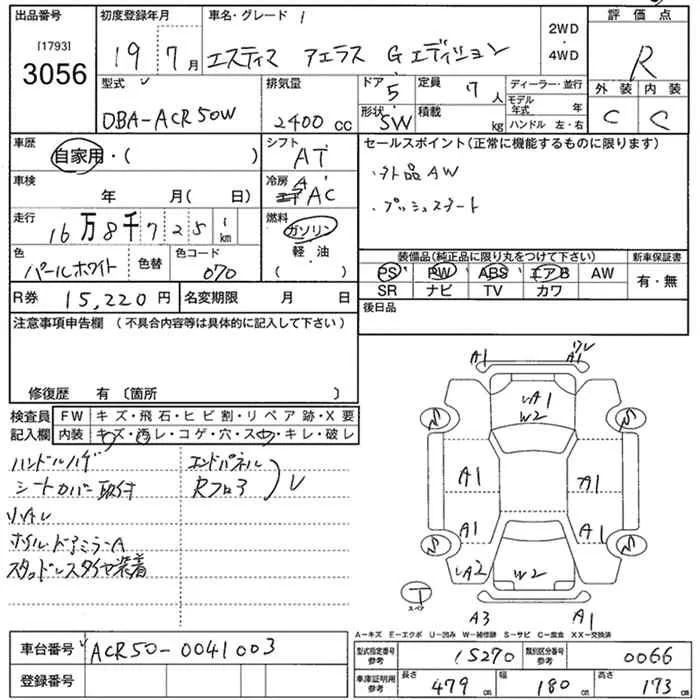 出品番号
[1793]
3056
初度登録年月
19年7月
車名・グレード
エスティマ アエラス G エディション
2WD
・
4WD
評価点
R
外装 内装
C C
型式
DBA-ACR50W
排気量
2400 cc
ドア 5
形状 SW
定員 7人
積載 kg
ディーラー・並行
モデル年式 年
ハンドル 左・右
車歴
自家用・( )
シフト
AT
セールスポイント(正常に機能するものに限ります)
・外品AW
・プッシュスタート
車検
年 月( 日)
冷房
AAC
走行
16万8千725 km
燃料
ガソリン
軽・油
( )
色
パールホワイト
色替
色コード
070
装備品(純正品に限り丸をつけて下さい)
PS PW ABS エアB AW
SR ナビ TV カワ
新車保証書
有・無
R券 15,220円
名変期限 月 日
後日品
注意事項申告欄 (不具合内容等は具体的に記入して下さい)
修復歴 有〔箇所 〕
検査員記入欄
FW キズ・飛石・ヒビ割・リペア跡・X要
内装 キズ・汚レ・コゲ・穴・スレ・キレ・破レ
ハンドルハゲ
シートカバー取付
リハイレ
ホイル・ドアミラーA
スタッドレスタイヤ装着
エンドパネル
Rフロア
レ
A1
A1
ワレ
A1
W2
A1
A1
A1
A1
A2
W2
T
スペア
A3
A1
A-キズ E-エクボ U-凹み W-補修跡 S-サビ C-腐食 XX-交換済
車台番号 ACR50-0041003
登録番号
型式指定番号参考 15270
類別区分番号参考 0066
車庫証明用参考
長さ 479cm
幅 180cm
高さ 173cm